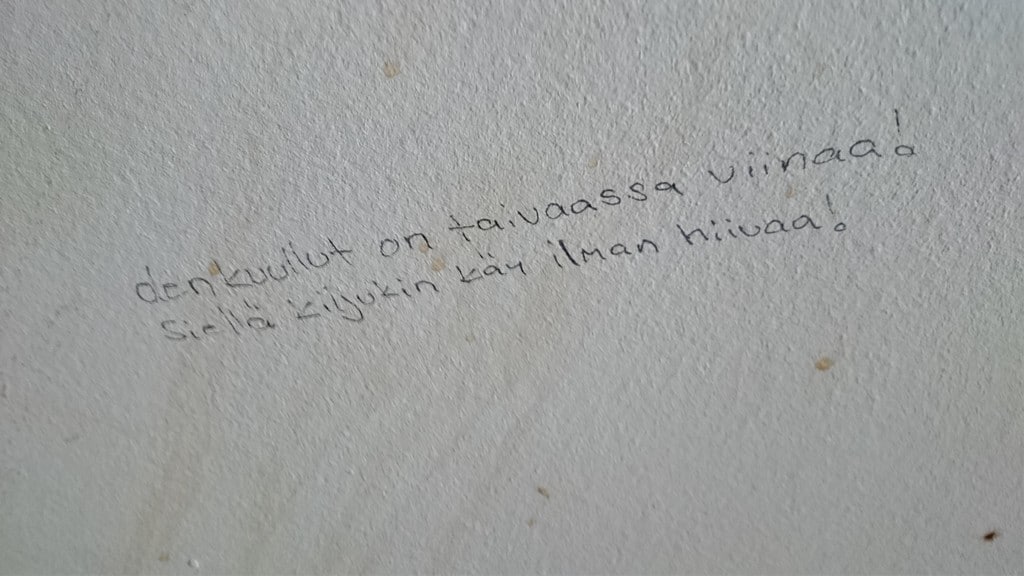 den kuullut on taivaassa viinaa!
Siellä kiljukin käy ilman hiivaa!